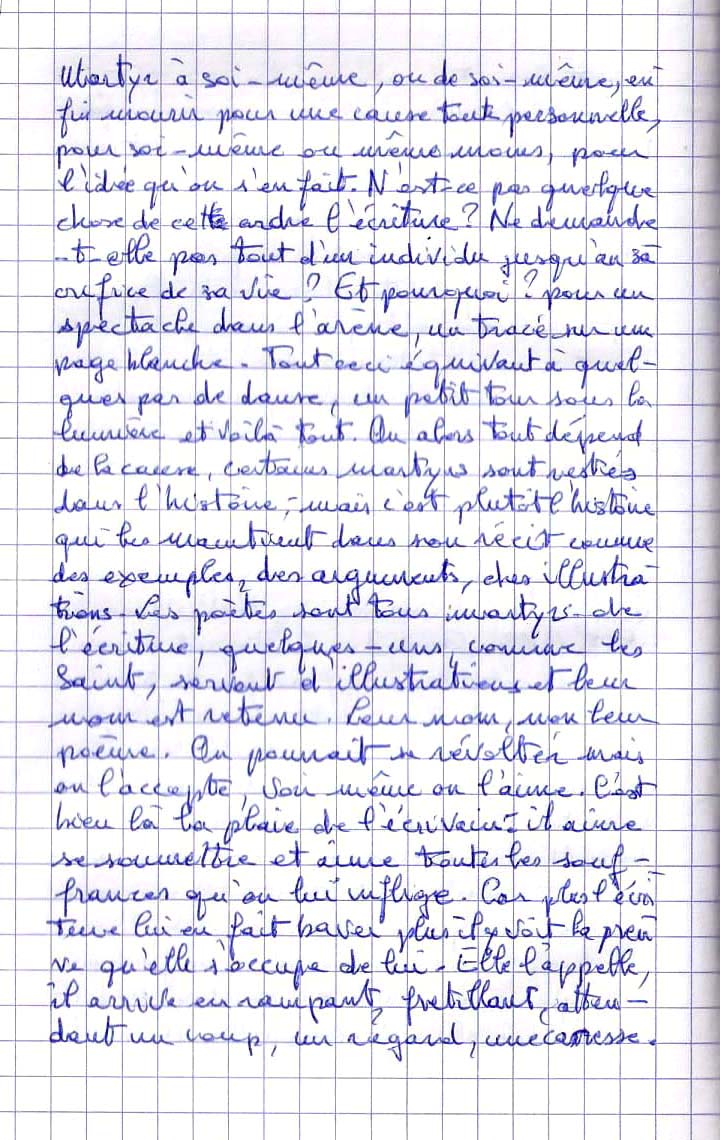 Martyr à soi-même, ou de soi-même, en
fin mourir pour une cause toute personnelle,
pour soi-même ou même moins, pour
l'idée qu'on s'en fait. N'est-ce pas quelque
chose de cet ordre l'écriture ? Ne demande
-t-elle pas tout d'un individu jusqu'au sa
crifice de sa vie ? Et pourquoi ? pour un
spectacle dans l'arène, un tracé sur une
page blanche. Tout ceci équivaut à quel-
ques pas de danse, un petit tour sous la
lumière et voilà tout. Ou alors tout dépend
de la cause, certains martyrs sont restés
dans l'histoire, - mais c'est plutôt l'histoire
qui les maintient dans son récit comme
des exemples, des arguments, des illustra
tions. Les poètes sont tous martyrs de
l'écriture, quelques-uns, comme les
Saint, servent d'illustrations et leur
nom est retenu. Leur nom, non leur
poème. On pourrait se révolter mais
on l'accepte, voir même on l'aime. C'est
bien là la plaie de l'écrivain : il aime
se soumettre et aime toutes les souf-
frances qu'on lui inflige. Car plus l'écri
ture lui en fait baver plus il y voit la preu
ve qu'elle s'occupe de lui. Elle l'appelle,
il arrive en rampant, fretillant, atten-
dant un coup, un regard, une caresse.